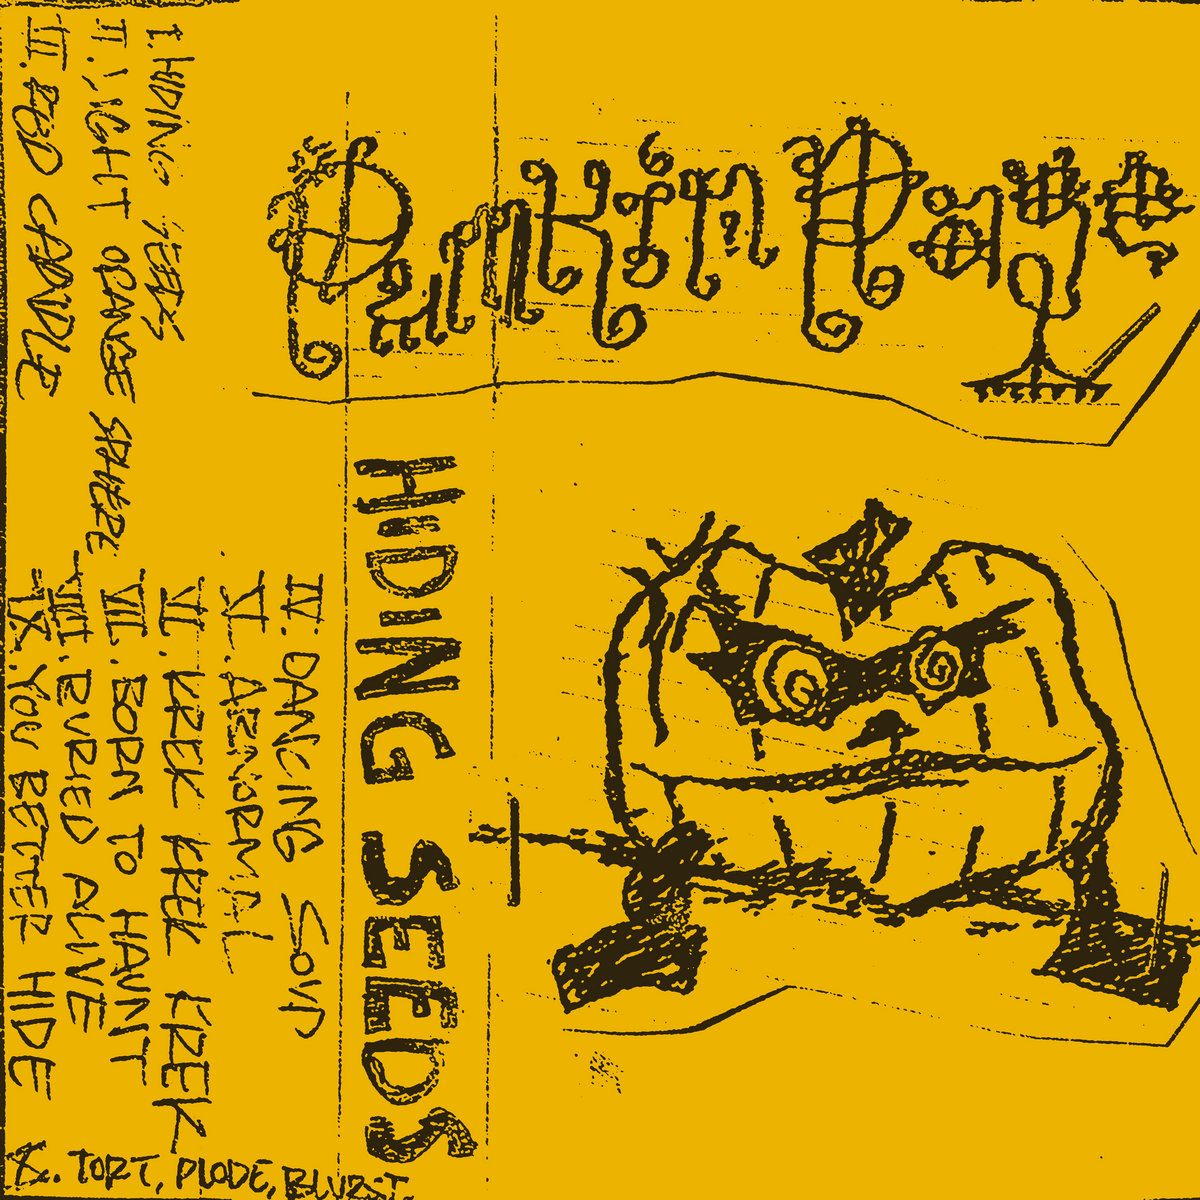 Pumkin
HIDING SEEDS
I. HIDING SEEDS
II. LIGHT ORANGE SPHERE
III. RED CANDLE
IV. DANCING SOUP
V. ABNORMAL
VI. KREK KREK KREK
VII. BORN TO HAUNT
VIII. BURIED ALIVE
IX. YOU BETTER HIDE
X. TORT, PLODE, BLURST.